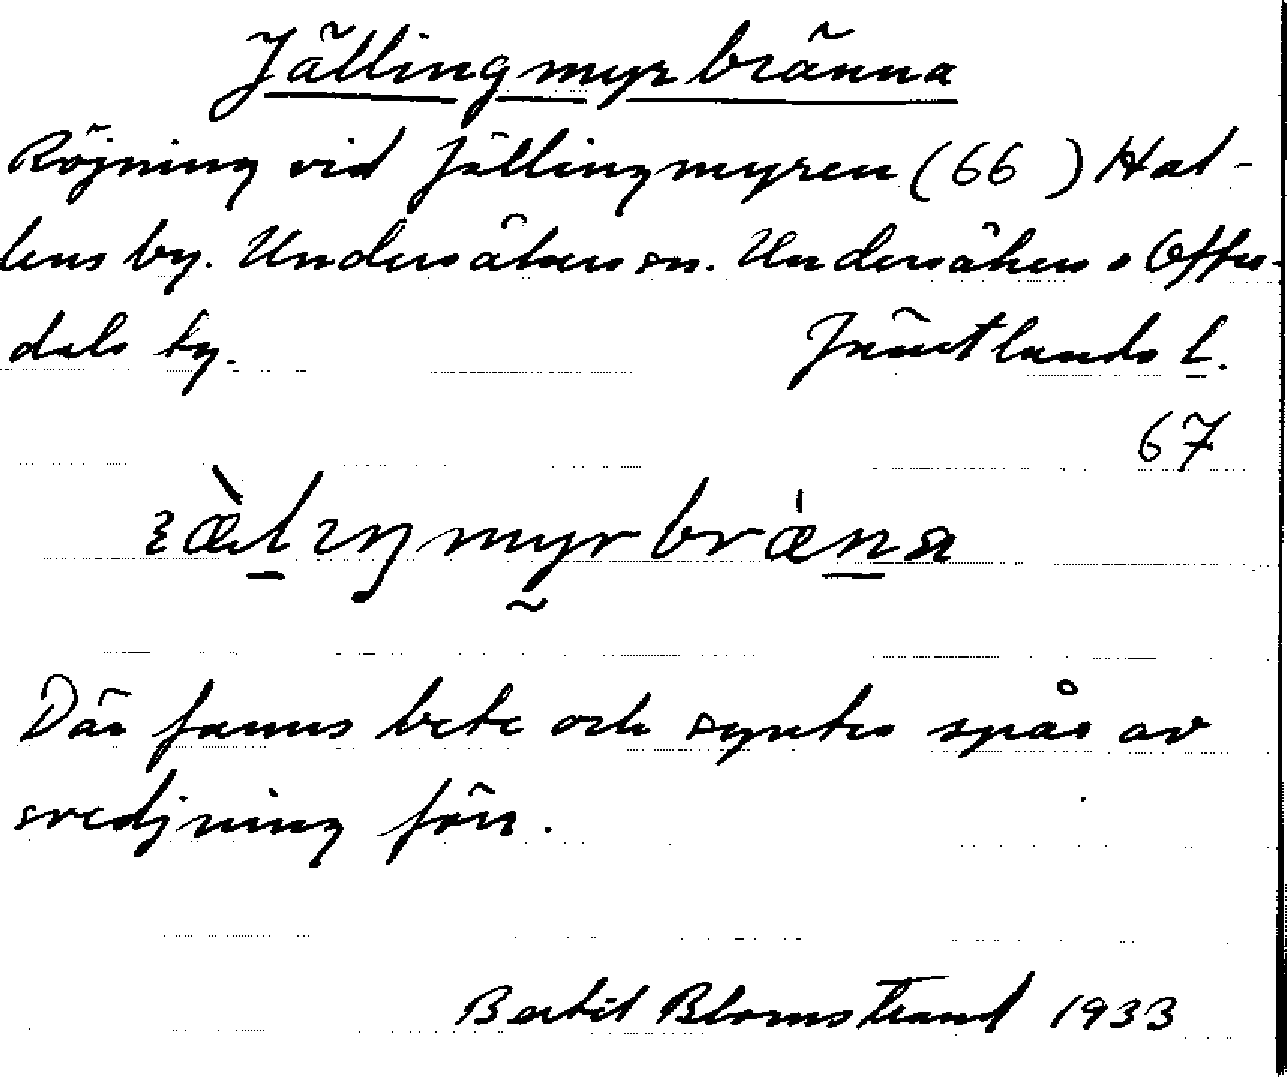 Jällingmyrbränna
Röjning vid Jällingmyren (66) Hal-
lens by. Undersåkers sn. Undersåkers o Offer-
dals tg. Jämtlands l.
67
ꝛæ̀lıŋmyrbræ̀na
Där fanns bete och syntes spår av
svedjning förr.
Bertil Blomstrand 1933